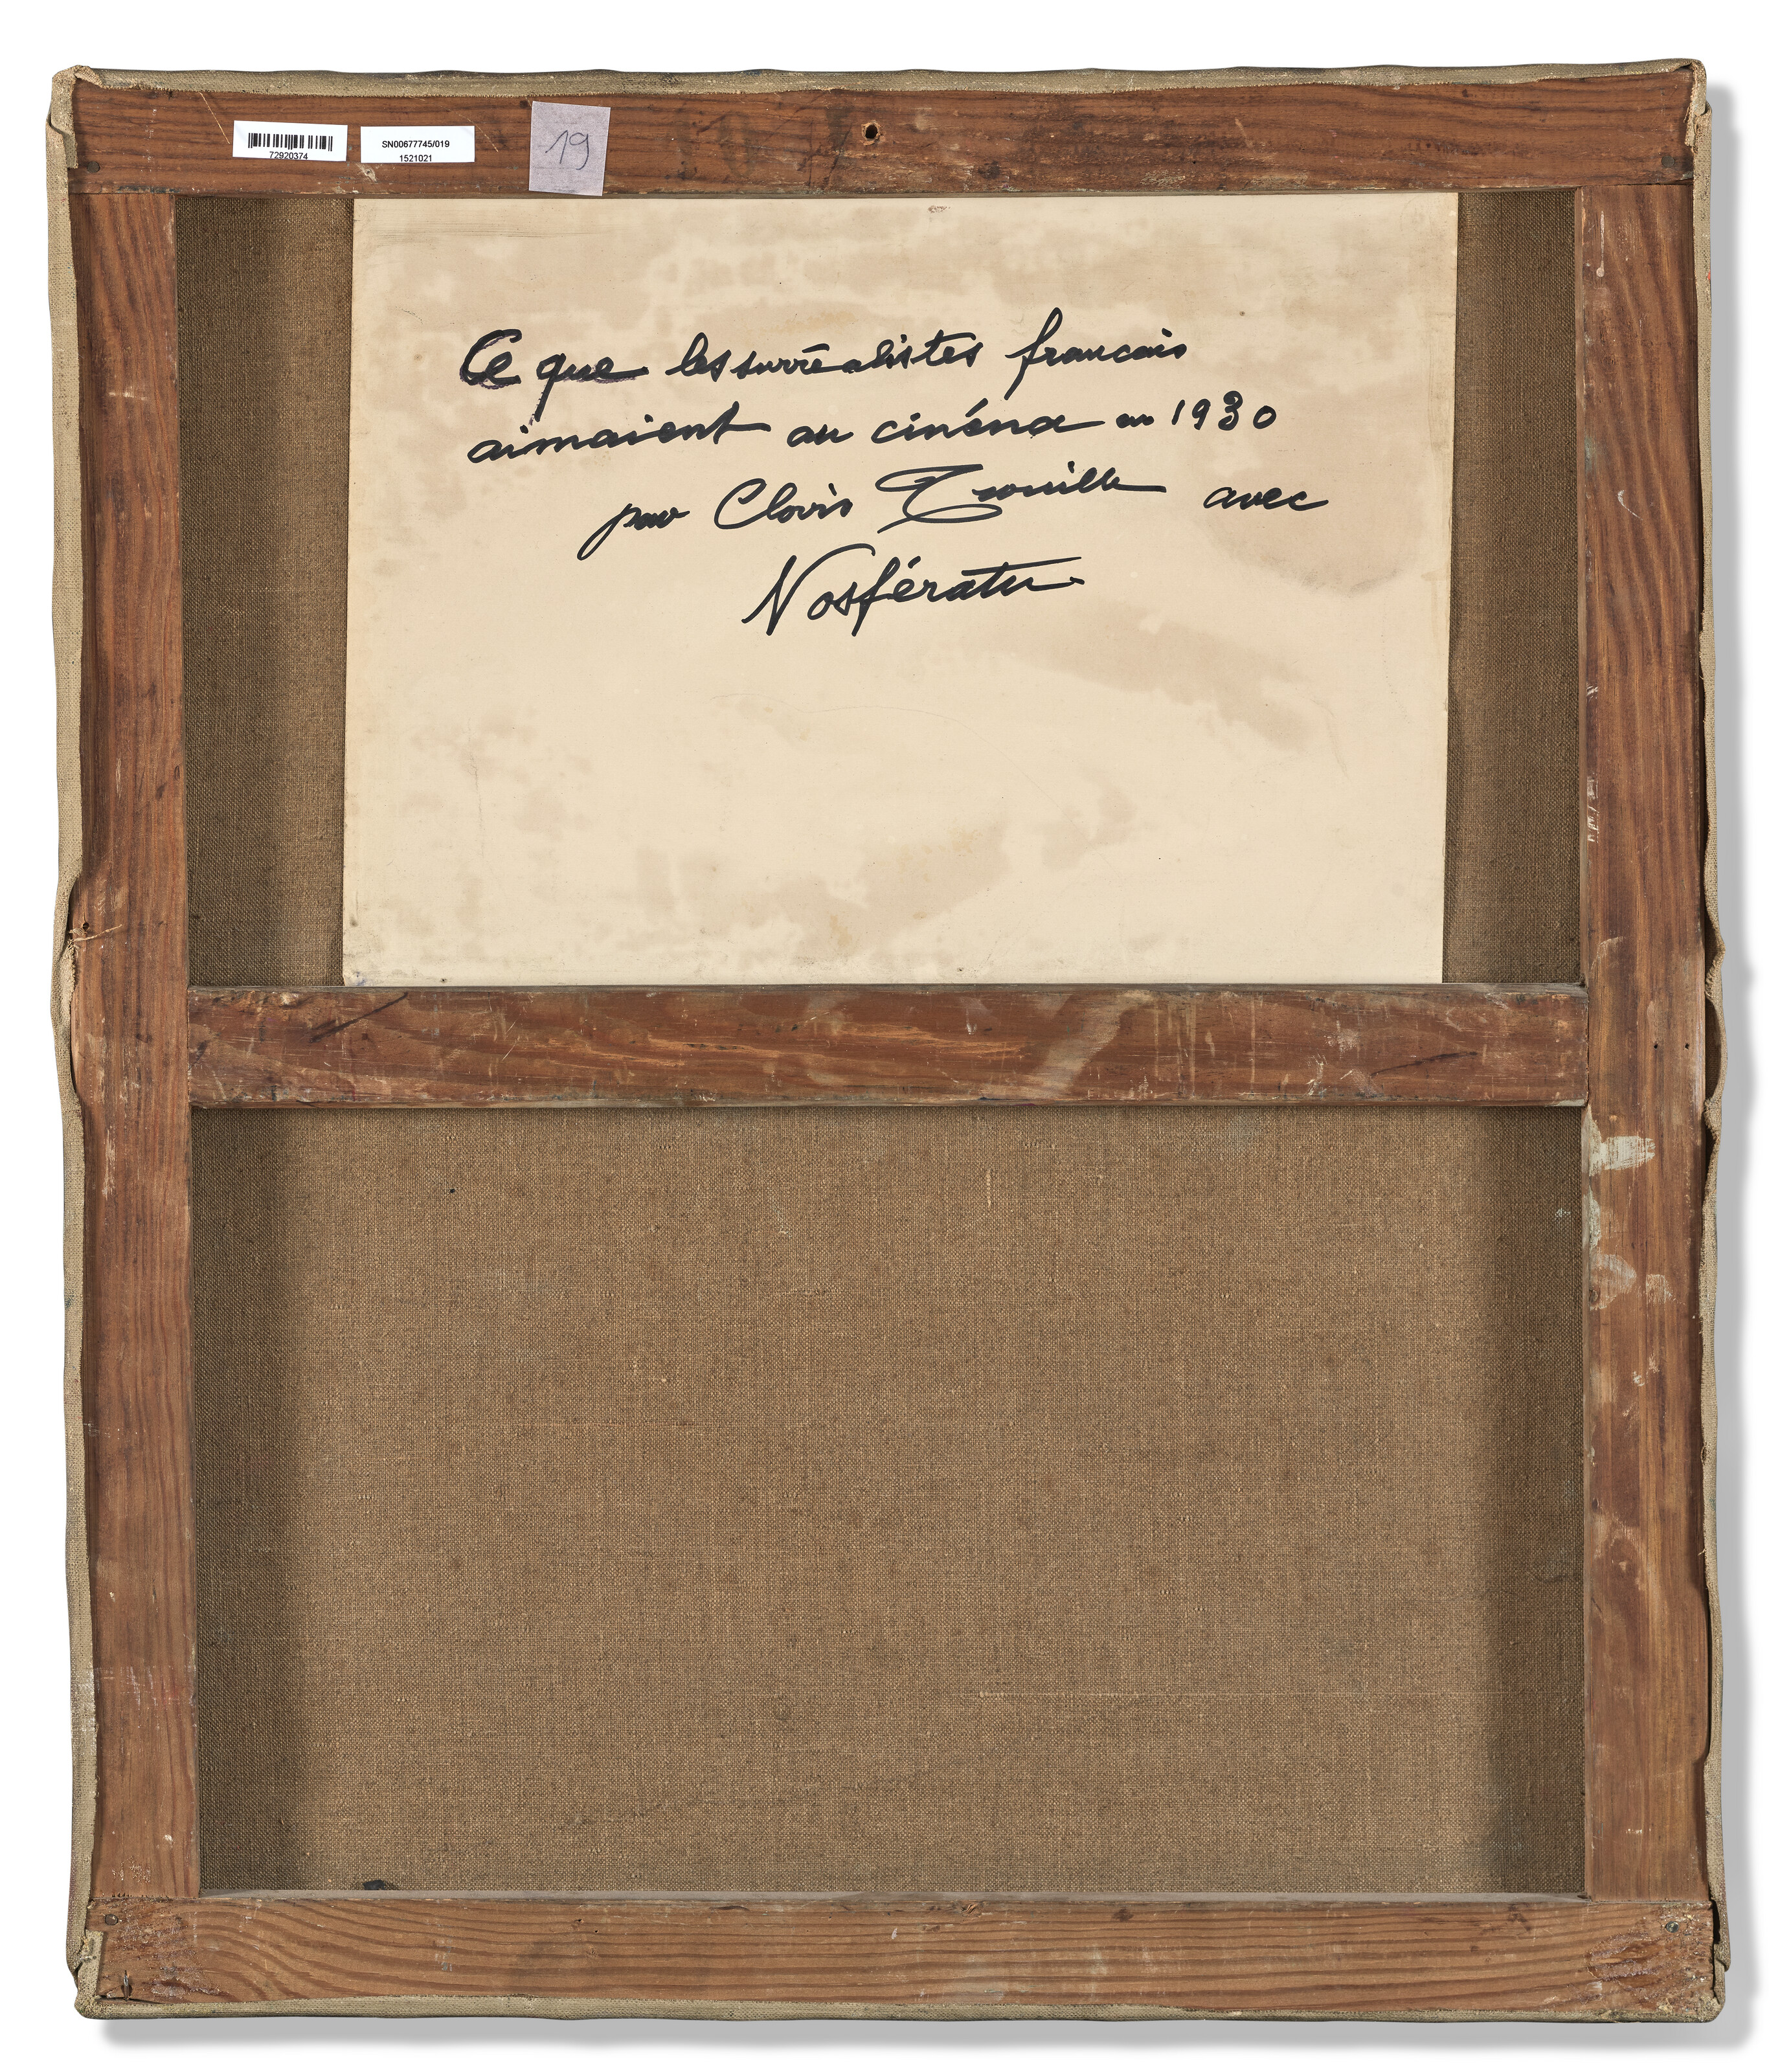 72920374
SN00677745/019
1521021
19
Ce que les surréalistes francais
aimaient au cinéma en 1930
par Clovis Trouille avec
Nosfératu